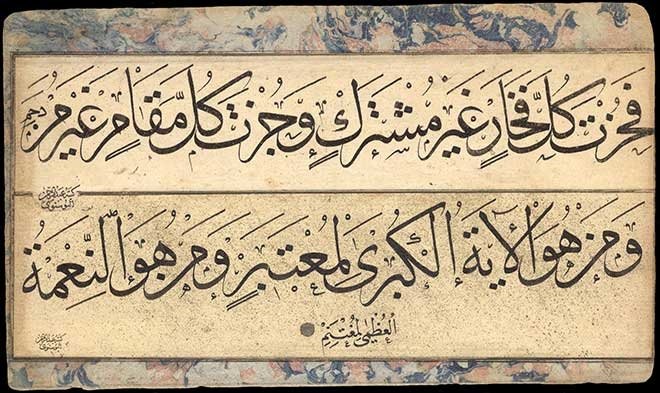 فَحُزْتَ كُلَّ فَخَارٍ غَيْرَ مُشْتَرَكٍ وَجُزْتَ كُلَّ مَقَامٍ غَيْرَ مُزْدَحَمِ
وَمَنْ هُوَ الْآيَةُ الْكُبْرَى لِمُعْتَبِرٍ وَمَنْ هُوَ النِّعْمَةُ
الْعُظْمَى لِمُغْتَنِمِ